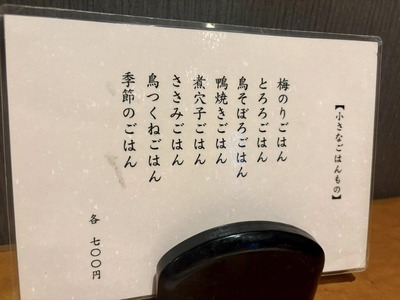 【小さなごはんもの】
梅のりごはん
とろろごはん
鳥そぼろごはん
鴨焼きごはん
煮穴子ごはん
ささみごはん
鳥つくねごはん
季節のごはん
各 七〇〇円